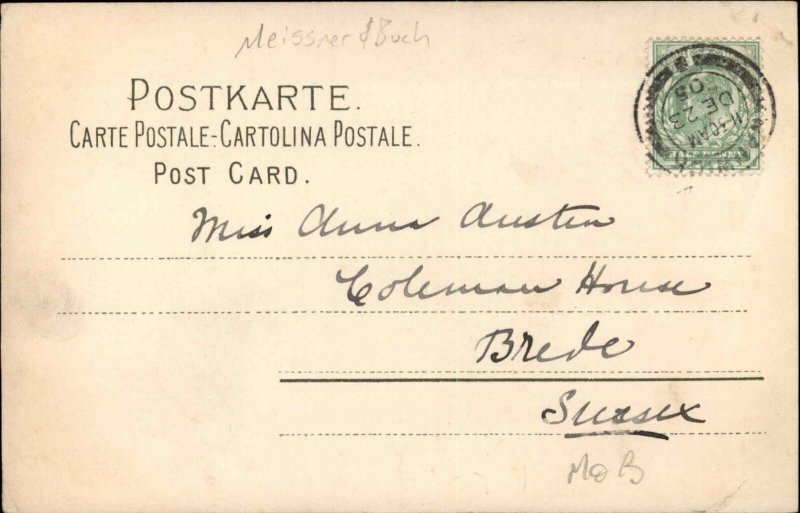 Meissner & Buch
POSTKARTE.
CARTE POSTALE-CARTOLINA POSTALE.
POST CARD.
11.30AM
DE 23
05
HALF PENNY
Miss Anna Austen
Coleman House
Brede
Sussex
M&B